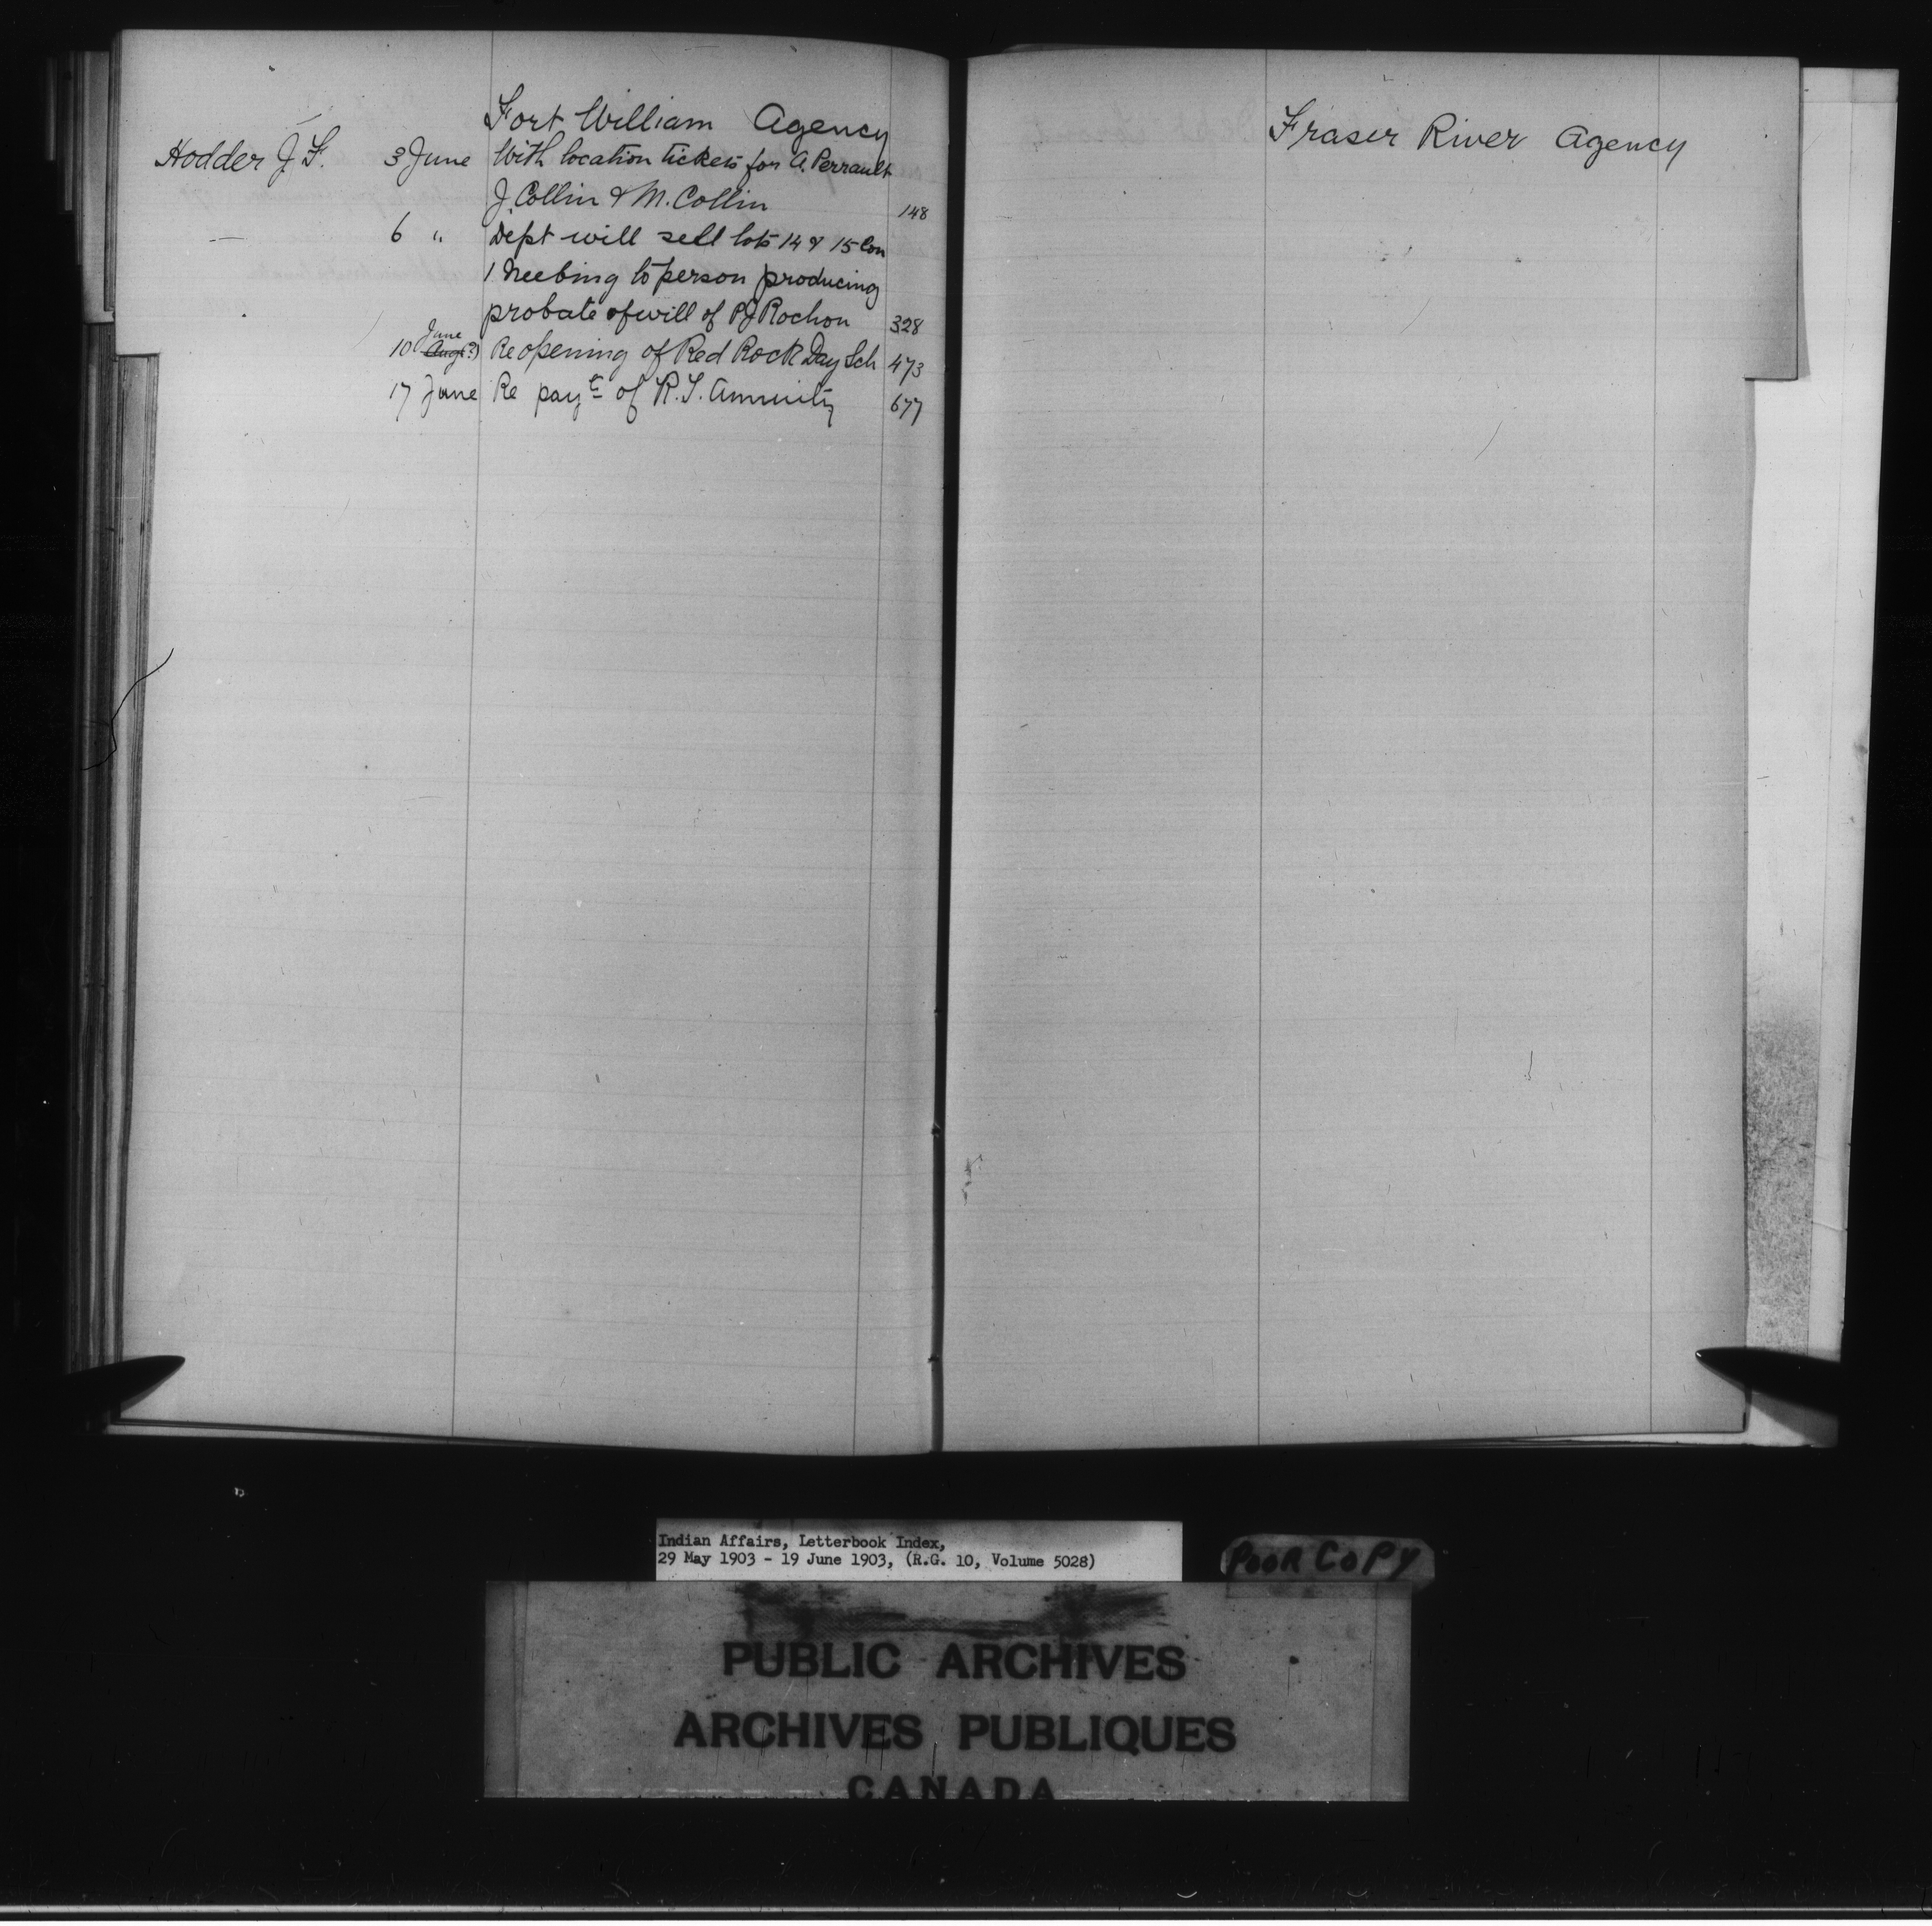 Fort William Agency
Hodder J. F. 3 June With location tickets for A. Perrault
J. Collin & M. Collin 148
— 6 " Dept will sell lots 14 & 15 Con
1 Neebing to person producing
probate of will of P J Rochon 328
June
10 (Augt?) Re opening of Red Rock Day Sch 473
17 June Re payt of R. T. Annuity 677
Fraser River Agency
Indian Affairs, Letterbook Index,
29 May 1903 - 19 June 1903, (R.G. 10, Volume 5028)
POOR COPY
PUBLIC ARCHIVES
ARCHIVES PUBLIQUES
CANADA